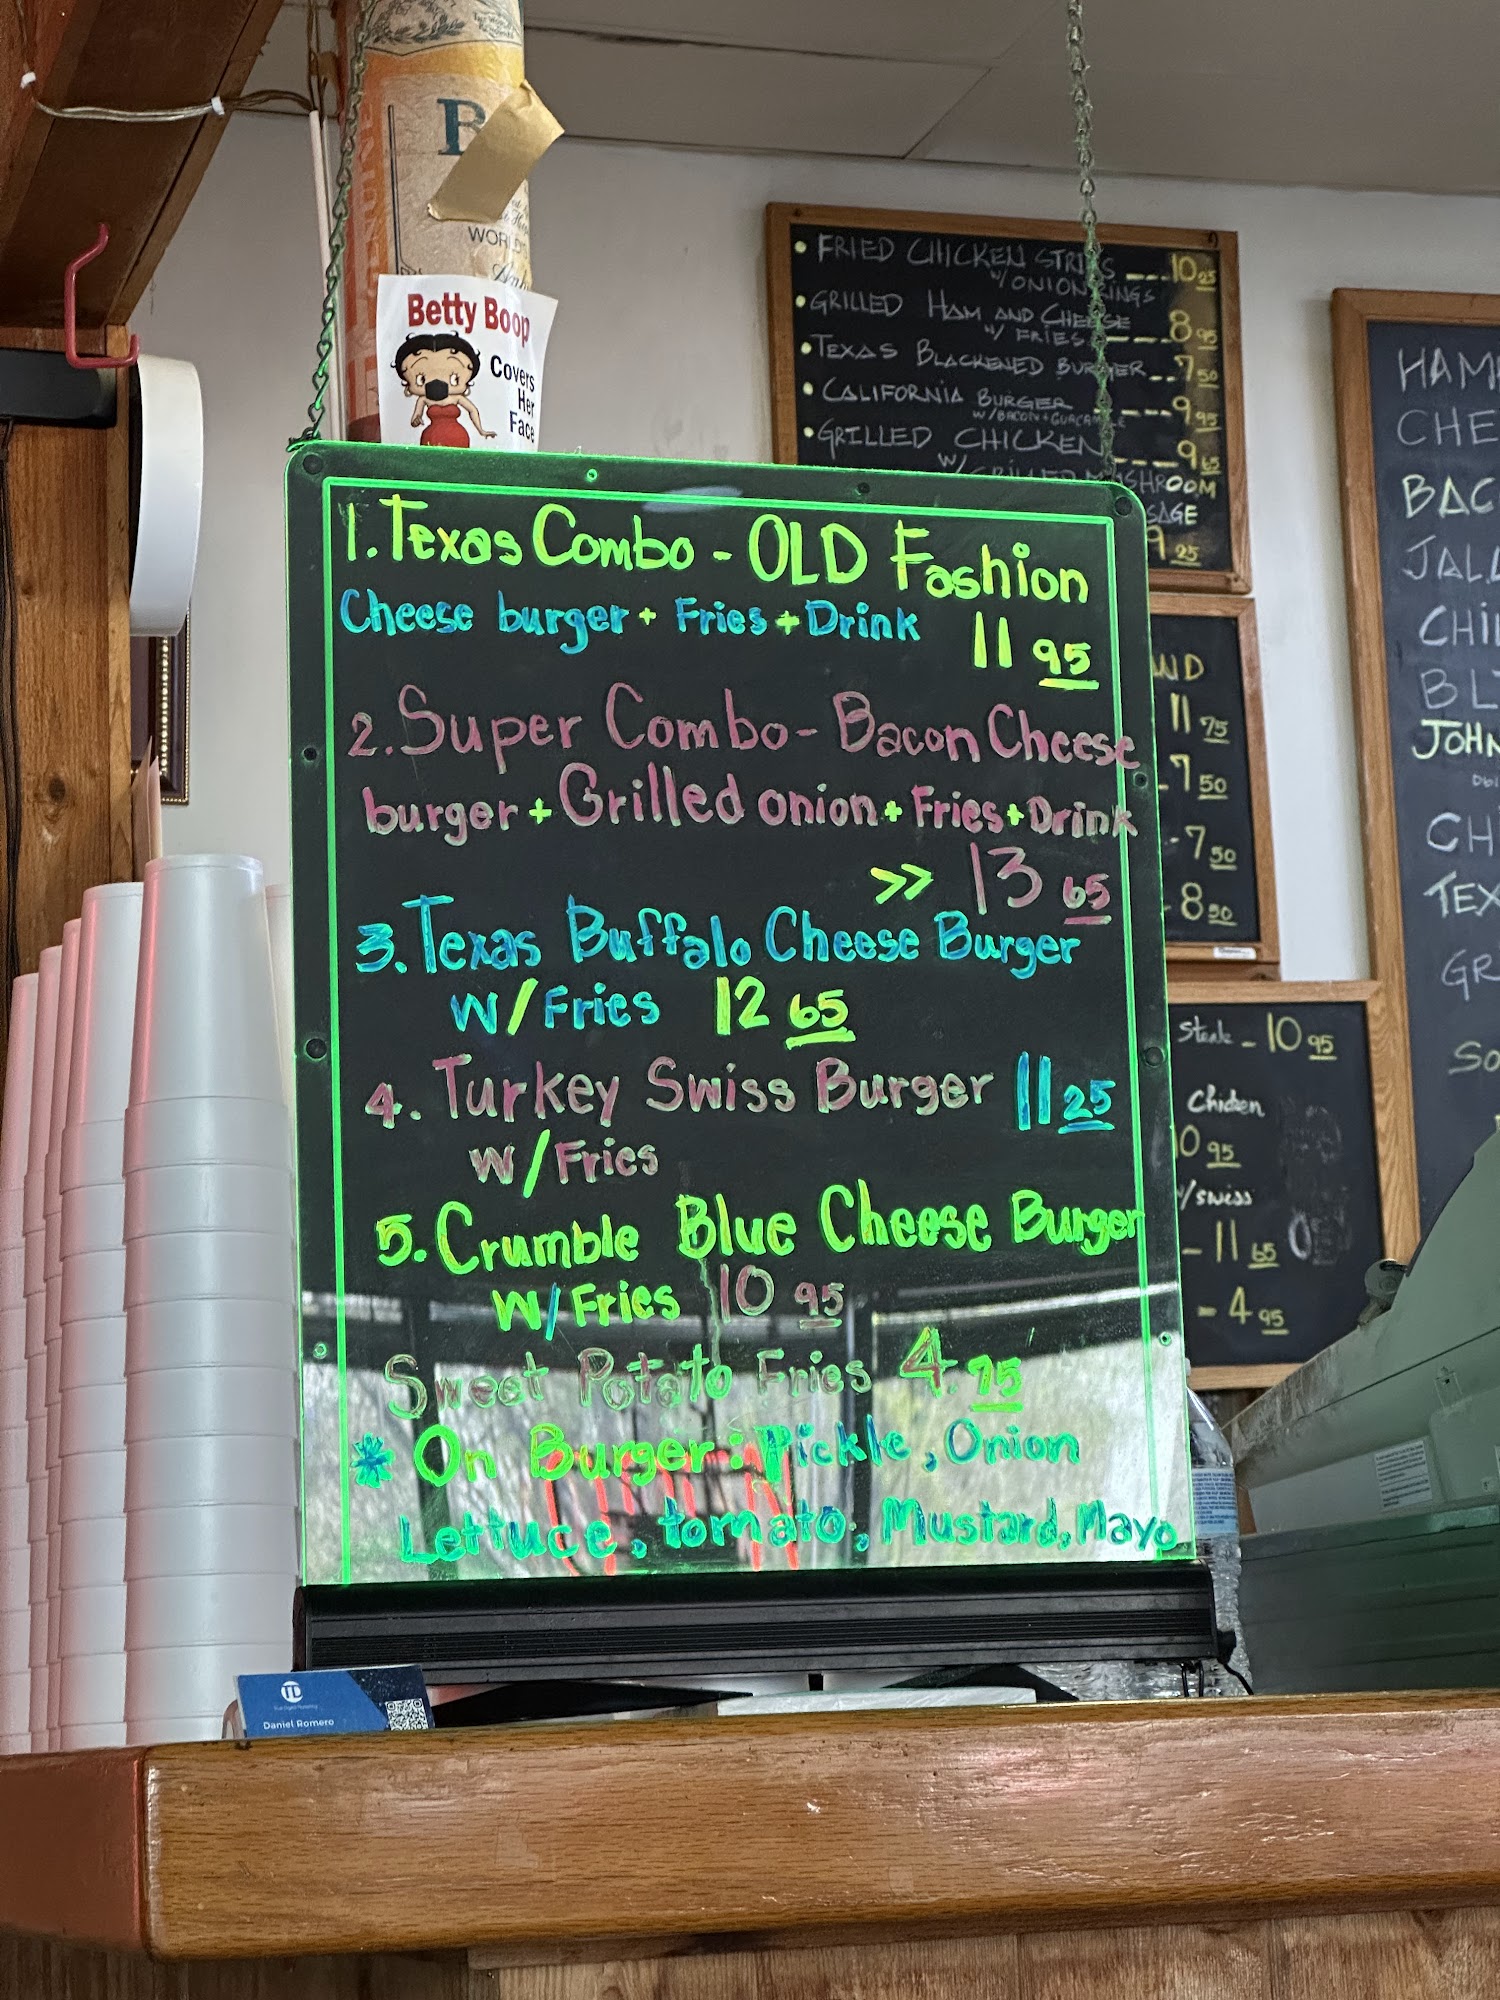 B
WORLD
Betty Boop
Covers
Her
Face
1. Texas Combo - OLD Fashion
Cheese burger + Fries + Drink 11 95
2. Super Combo - Bacon Cheese
burger + Grilled onion + Fries + Drink
>> 13 65
3. Texas Buffalo Cheese Burger
W/Fries 12 65
4. Turkey Swiss Burger 11 25
W/Fries
5. Crumble Blue Cheese Burger
W/Fries 10 95
Sweet Potato Fries 4.75
* On Burger: Pickle, Onion
Lettuce, tomato, Mustard, Mayo
• FRIED CHICKEN STRIPS ---10 25
W/ONION RINGS
• GRILLED HAM AND CHEESE
W/ FRIES --- 8 95
• TEXAS BLACKENED BURGER --7 50
• CALIFORNIA BURGER ---9 95
W/BACON + GUACAMOLE
• GRILLED CHICKEN ---9 65
W/GRILLED MUSHROOM
SAGE
9 25
ND
11 75
-7 50
-7 50
-8 50
Steak - 10 95
Chicken
0 95
/swiss
-11 65
-4 95
HAM
CHE
BAC
JALA
CHI
BLT
JOHN
CH
TEX
GR
SO
Daniel Romero